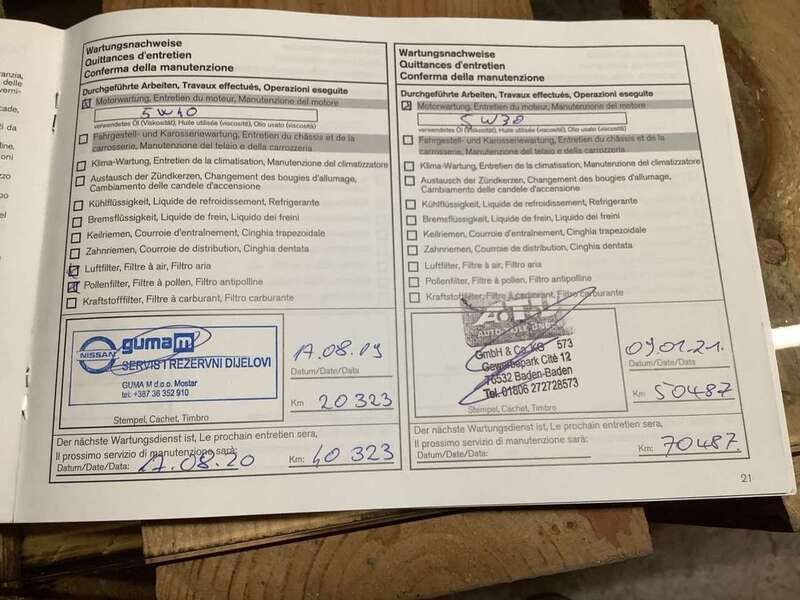 Wartungsnachweise
Quittances d'entretien
Conferma della manutenzione
Durchgeführte Arbeiten, Travaux effectués, Operazioni eseguite
Motorwartung, Entretien du moteur, Manutenzione del motore
5W40
verwendetes Öl (Viskosität), Huile utilisée (viscosité), Olio usato (viscosità)
Fahrgestell- und Karosseriewartung, Entretien du châssis et de la
carrosserie, Manutenzione del telaio e della carrozzeria
Klima-Wartung, Entretien de la climatisation, Manutenzione del climatizzatore
Austausch der Zündkerzen, Changement des bougies d'allumage,
Cambiamento delle candele d'accensione
Kühlflüssigkeit, Liquide de refroidissement, Refrigerante
Bremsflüssigkeit, Liquide de frein, Liquido dei freini
Keilriemen, Courroie d'entraînement, Cinghia trapezoidale
Zahnriemen, Courroie de distribution, Cinghia dentata
Luftfilter, Filtre à air, Filtro aria
Pollenfilter, Filtre à pollen, Filtro antipolline
Kraftstofffilter, Filtre à carburant, Filtro carburante
NISSAN
guma M
SERVIS I REZERVNI DIJELOVI
GUMA M d.o.o. Mostar
tel: +387 36 352 910
Stempel, Cachet, Timbro
17.08.19
Datum/Date/Data
Km 20 323
Der nächste Wartungsdienst ist, Le prochain entretien sera,
Il prossimo servizio di manutenzione sarà:
Datum/Date/Data: 17.08.20 Km: 40 323
Wartungsnachweise
Quittances d'entretien
Conferma della manutenzione
Durchgeführte Arbeiten, Travaux effectués, Operazioni eseguite
Motorwartung, Entretien du moteur, Manutenzione del motore
5W30
verwendetes Öl (Viskosität), Huile utilisée (viscosité), Olio usato (viscosità)
Fahrgestell- und Karosseriewartung, Entretien du châssis et de la
carrosserie, Manutenzione del telaio e della carrozzeria
Klima-Wartung, Entretien de la climatisation, Manutenzione del climatizzatore
Austausch der Zündkerzen, Changement des bougies d'allumage,
Cambiamento delle candele d'accensione
Kühlflüssigkeit, Liquide de refroidissement, Refrigerante
Bremsflüssigkeit, Liquide de frein, Liquido dei freini
Keilriemen, Courroie d'entraînement, Cinghia trapezoidale
Zahnriemen, Courroie de distribution, Cinghia dentata
Luftfilter, Filtre à air, Filtro aria
Pollenfilter, Filtre à pollen, Filtro antipolline
Kraftstofffilter, Filtre à carburant, Filtro carburante
A.T.U
GmbH & Co. KG 573
Gewerbepark Cité 12
76532 Baden-Baden
Tel. 01806 272728573
Stempel, Cachet, Timbro
09.01.21.
Datum/Date/Data
Km 50487
Der nächste Wartungsdienst ist, Le prochain entretien sera,
Il prossimo servizio di manutenzione sarà:
Datum/Date/Data: Km: 70487.
21